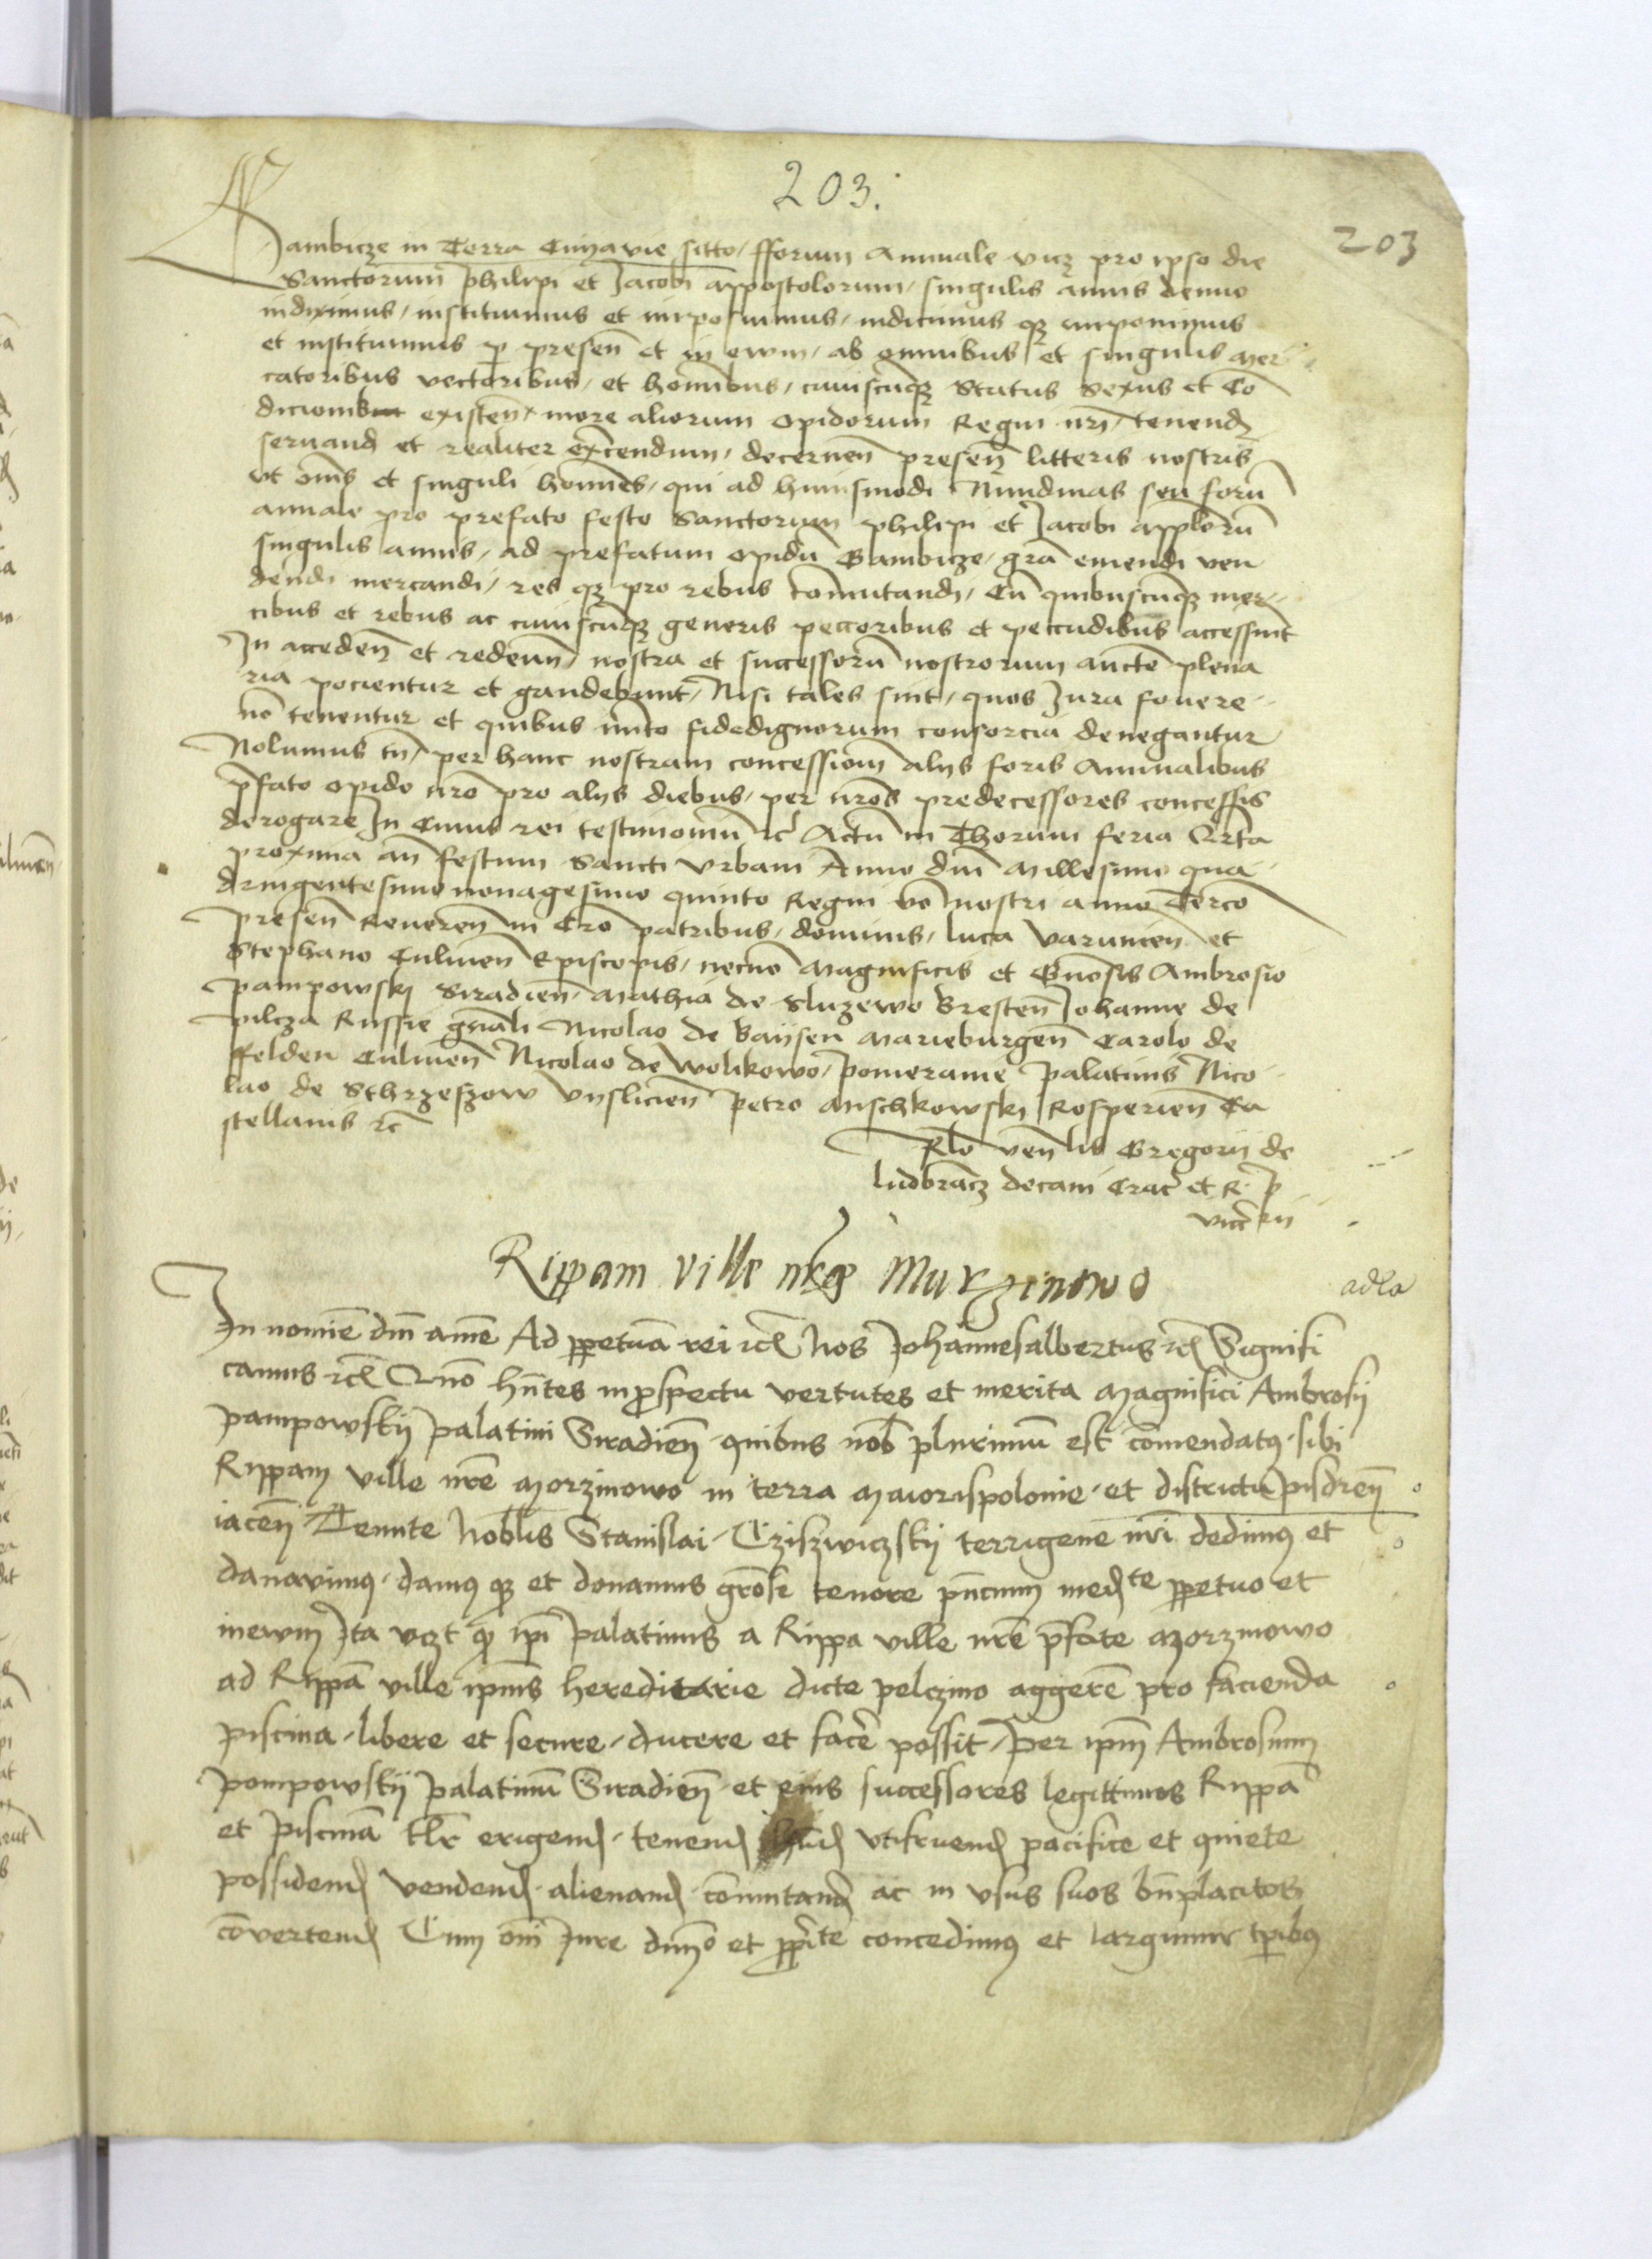 203.
203
Gambicze in Terra Cuyavie sitto / fforum Annuale vicz pro ipso die
Sanctorum philipi et Jacobi appostolorum / singulis annis denuo
indiximus / instituimus et inposuimus / indicimus qz inponimus
et instituimus p presen̄ et in ewm / ab omnibus et singulis mer
catoribus vectoribus / et hominibus / cuiuscūqz status sexus et Co
diciomb existen̄ / more aliorum opidorum Regni nr̄i tenend
servand et realiter exercendum / decernen̄ presen̄ litteris nostris
vt om̄s et singuli homines / qui ad huiusmodi Nundinas seu forū
annale pro prefato festo Sanctorum philipi et Jacobi applorū
singulis annis / ad prefatum opidū Gambicze / grā emendi ven
dendi mercandi / res qz pro rebus com̄utandi / Cū quibuscūqz mer
cibus et rebus ac cuiuscūqz generis peccoribus et peccudibus accessint
In acceden̄ et redeun̄ / nostra et successorū nostrorum aucte plena
ria pocientur et gaudebunt / Nisi tales sint / quos Jura fouere
nō tenentur et quibus mito fidedignorum consorcia denegantur
Nolumus tn̄ / per hanc nostram concessiom̄ alys foris Annualibus
p̄fato opido nrō pro alys diebus / per nrōs predecessores concessis
derogare In Cuius rei testimoniū rc̄ Actū in Thorum feria Qrta
proxima an̄ festum Sancti Vrbani Anno dn̄i Millesimo qua
dringentesimo nonagesimo quinto Regni vō nostri anno Tercō
presen̄ Reueren̄ in Crō patribus / dominis / luca Varmien̄ et
Stephano Culmen̄ Episcopis / necnō Magnificis et Gn̄osis Ambrosio
pampowski Siradien̄ Mathia de Sluzewo Bresten̄ Johanne de
pilcza Russie gn̄ali Nicolao de Baysen Marieburgen̄ Carolo de
ffelden Culmen̄ Nicolao de Wolkowo / pomeranie palatinis Nico
lao de Sthrzeszow Vyslicien̄ petro Myschkowski Rosperien̄ Ca
stellanis rc̄
Rlō ven̄lis Gregorij de
ludbrancz decani Crac̄ et R. p
vicc̄rii
Rippam ville Murzinowo
In nomīe dn̄i amē Ad ppetuā rei rc̄ Nos Johannesalbertus rc̄ Signifi
camus rc̄ Quō hn̄tes in pspectu vertutes et merita Magnifici Ambrosij
pampowskij palatini Siradien̄ quibus nob̄ plurimū est comendatꝯ sibi
Rippam ville nrē Morzinowo in terra Maiorispolonie et districtu pisdren̄
iacen̄ Tenute Nob̄lis Stanislai Cziszwiczskij terrigene nrī dedimꝯ et
danavimꝯ damꝯ qz et donamus grose tenore pn̄cium med te ppetuo et
inewm Ita vczt qd ip̄i palatinus a Rippa ville nrē p̄fate Morzinowo
ad Rippā ville ip̄ius hereditarie dicte pelczino aggerē pro facienda
piscina libere et secure ducere et facē possit per ip̄m Ambrosium
pompowskij palatinū Siradien̄ et eius successores legittimos Rippā
et piscinā tlr̄ erigend tenend hn̄d vtifruend pacifice et quiete
possidend vendend alienand com̄utand ac in vsus suos bn̄placitos
cōvertend Cum om̄i Jure dn̄io et pp̄rte concedimꝯ et largimur tp̄ibꝯ